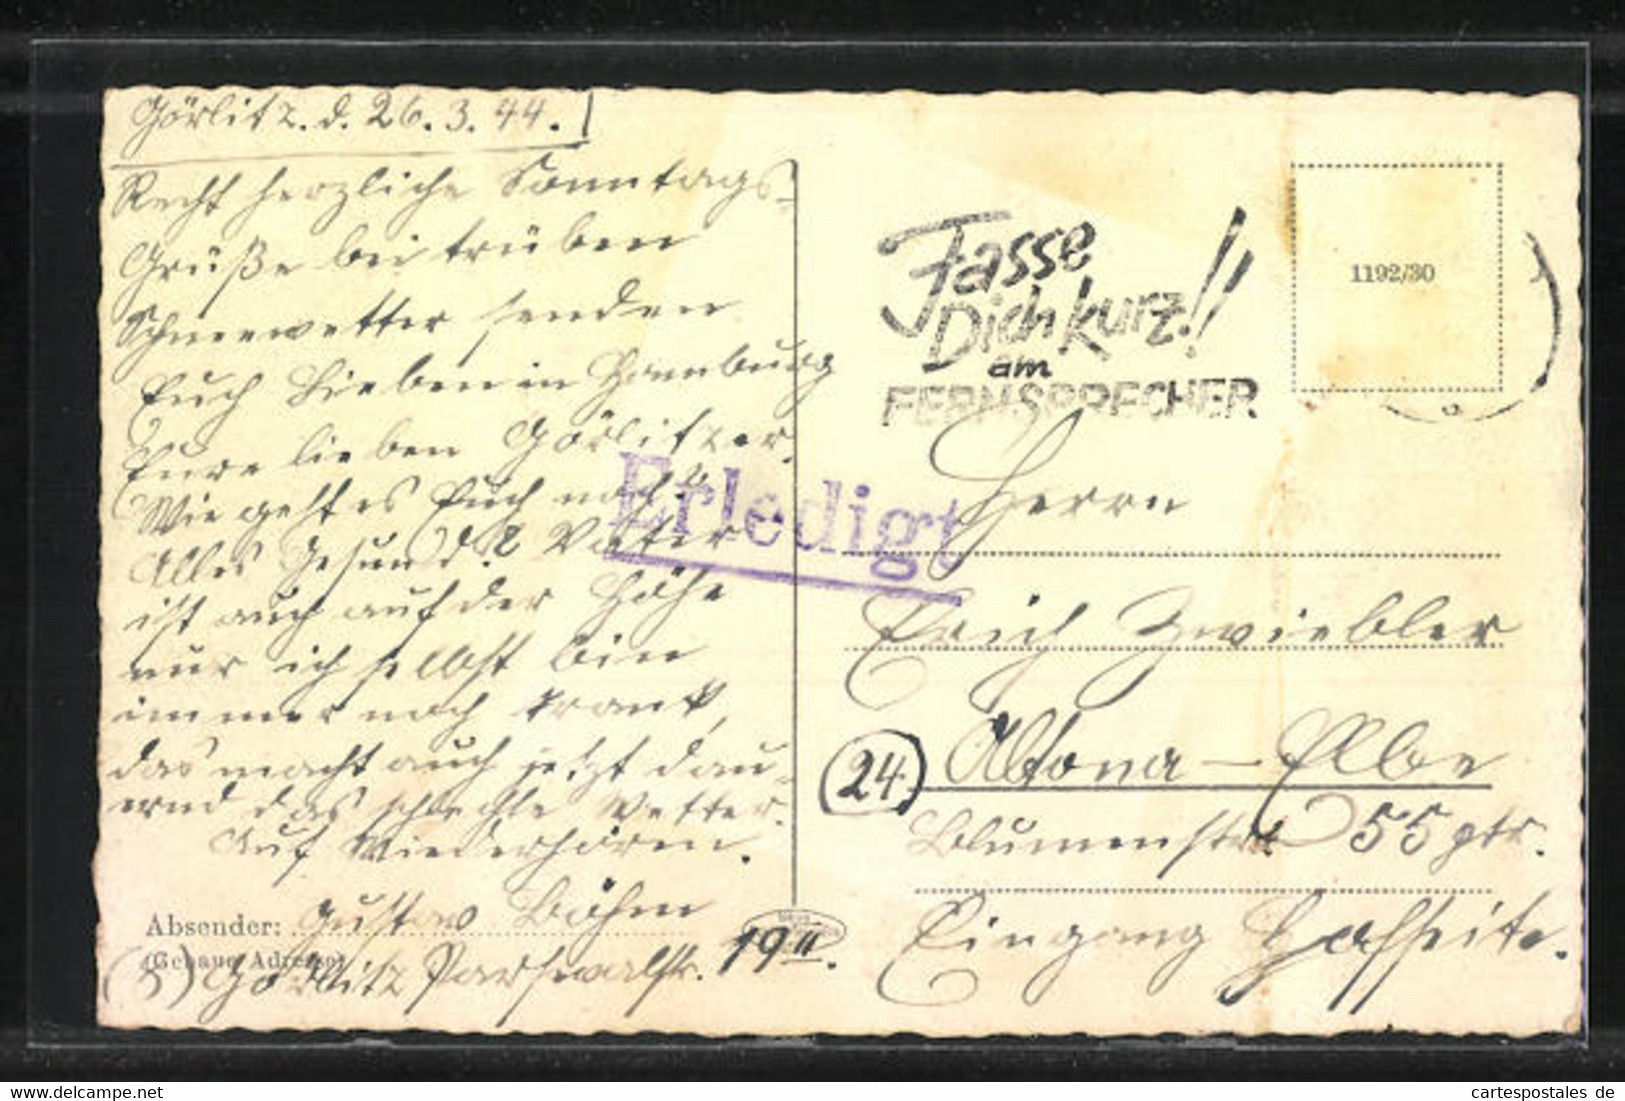 Görlitz. d. 26.3.44.
Recht herzliche Sonntags-
Grüße bei trüben
Schneewetter senden
Euch Lieben in Hamburg
Eure lieben Görlitzer.
Wie geht es Euch noch?
Alles Gesund? Vater
ist auch auf der Höhe
nur ich selbst bin
immer noch krank,
das macht auch jetzt dau-
ernd das schlechte Wetter.
Auf Wiederhören.
Absender: Gustav Böhm
(Genaue Adresse)
(5) Görlitz 19 II.
Fasse
Dich kurz!!
am
FERNSPRECHER.
1192/30
Erledigt
Herrn
Erich Zwiebler
(24) Altona – Elbe
Blumenstr. 55 ptr.
Eingang Hofseite.
www.cartespostales.eu
cartespostales de